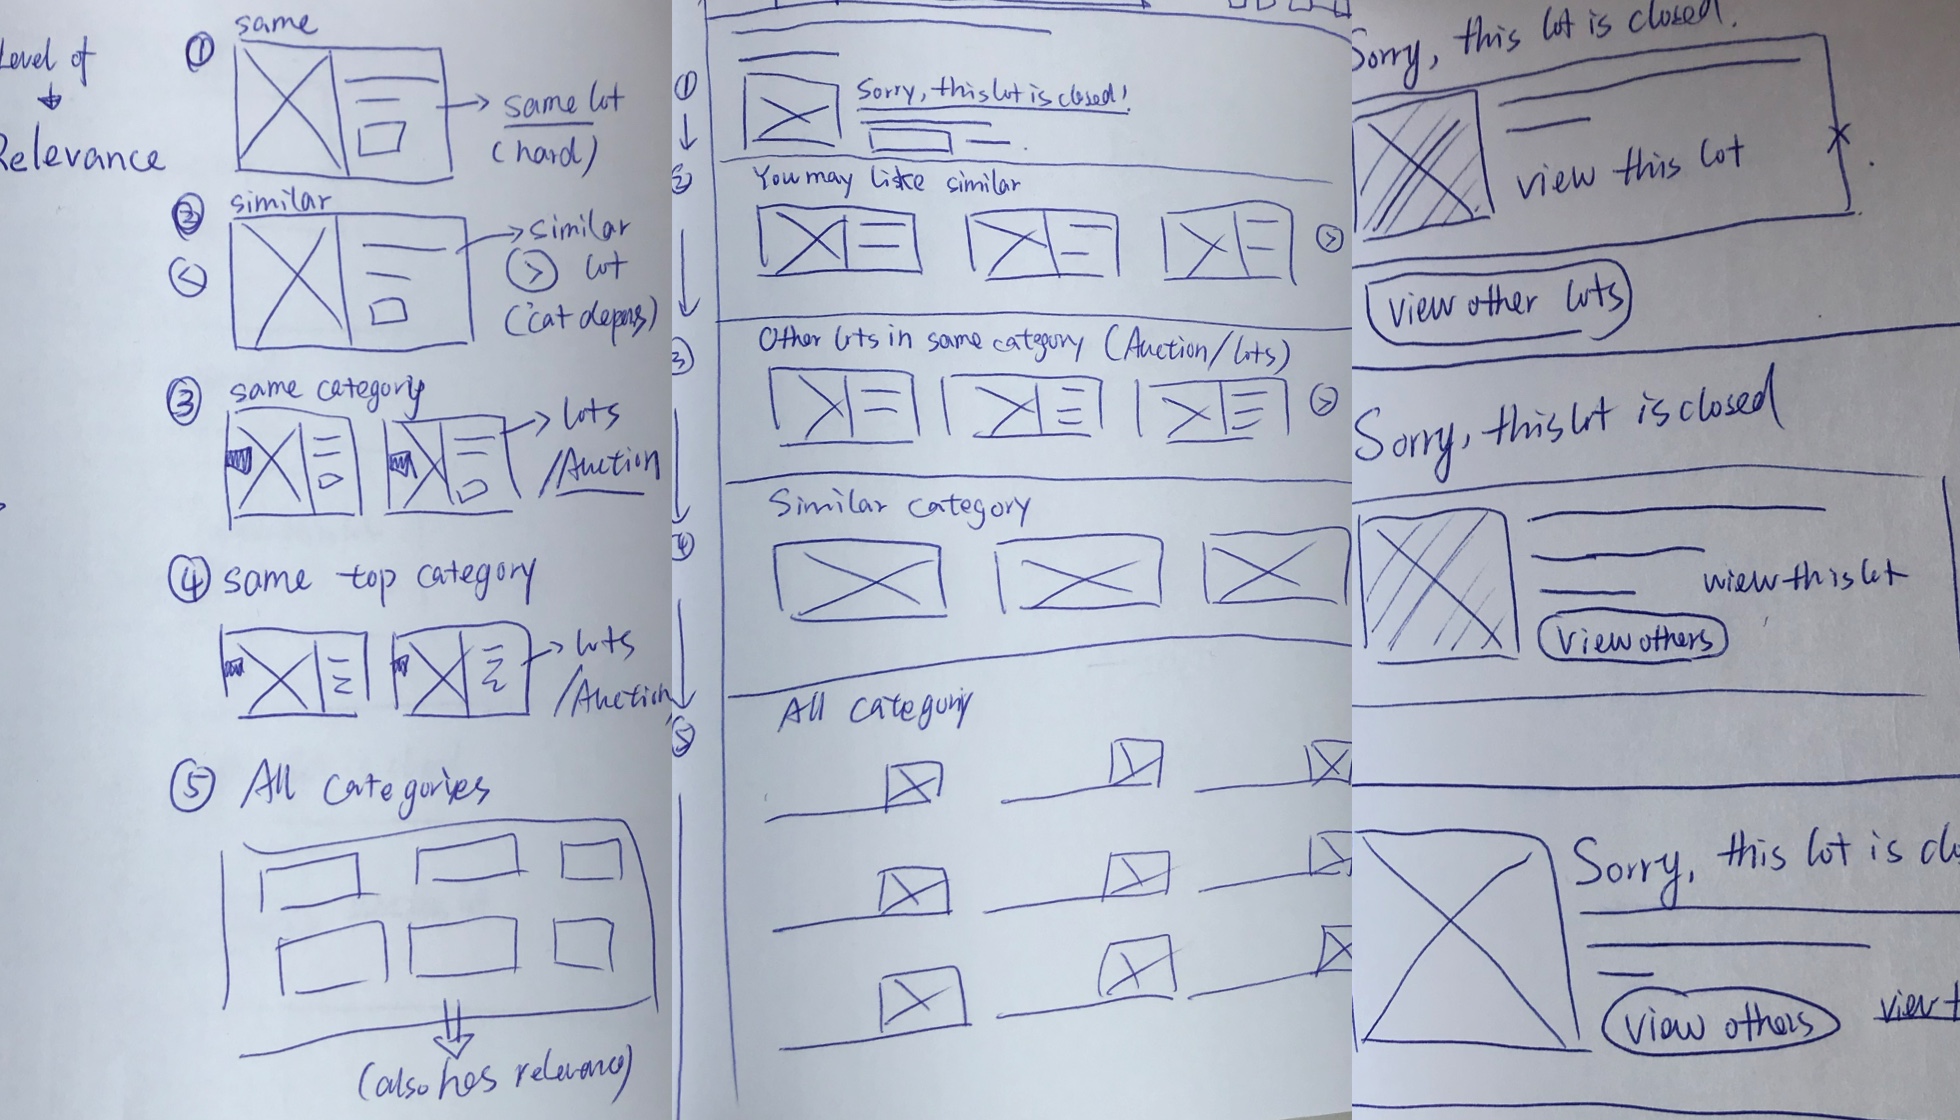 Level of
Relevance
① same
same lot
(hard)
② similar
similar
lot
③ same category
lots
/Auction
④ same top category
lots
/Auction
⑤ All categories
(also has relevance)
①
Sorry, this lot is closed!
②
You may like similar
③
Other lots in same category (Auction/lots)
Similar category
④
All category
⑤
Sorry, this lot is closed.
view this lot
view other lots
Sorry, this lot is closed
view this lot
view others
Sorry, this lot is clo
view others
view t